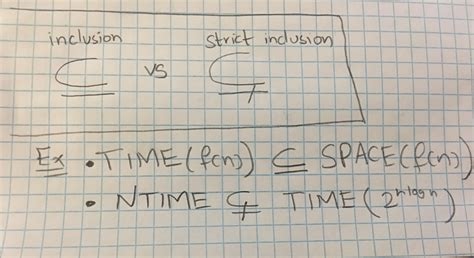 inclusion strict inclusion
⊆ vs ⊊
Ex • TIME(f(n)) ⊆ SPACE(f(n))
• NTIME ⊊ TIME(2^{n log n})